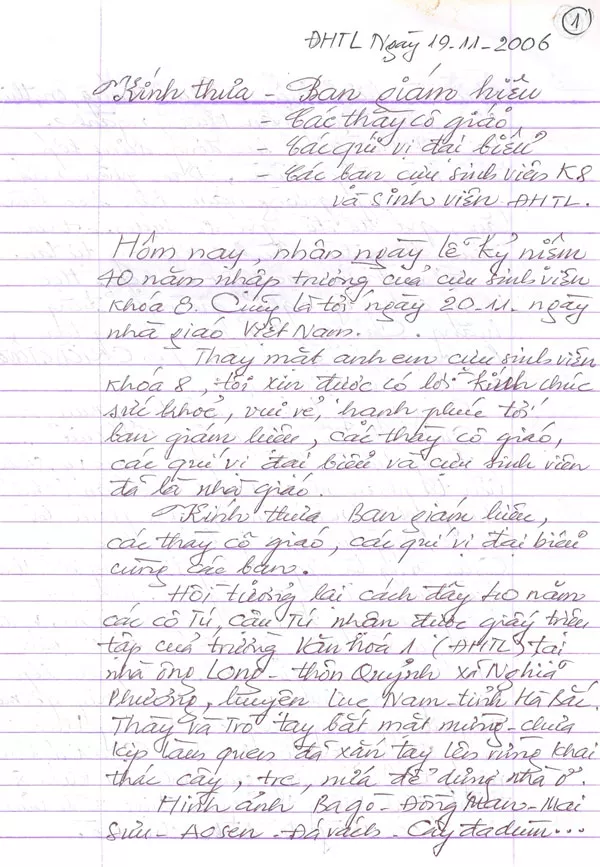 1
ĐHTL Ngày 19-11-2006
Kính thưa - Ban giám hiệu
- Các thầy cô giáo
- Các quí vị đại biểu
- Các bạn cựu sinh viên K8
và sinh viên ĐHTL.
Hôm nay, nhân ngày lễ kỷ niệm
40 năm nhập trường của cựu sinh viên
khóa 8. Cũng là tới ngày 20-11. ngày
nhà giáo Việt Nam.
Thay mặt anh em cựu sinh viên
khóa 8, tôi xin được có lời kính chúc
sức khoẻ, vui vẻ, hạnh phúc tới
ban giám hiệu, các thầy cô giáo,
các quí vị đại biểu và cựu sinh viên
đã là nhà giáo.
Kính thưa Ban giám hiệu,
các thầy cô giáo, các quí vị đại biểu
cùng các bạn.
Hồi tưởng lại cách đây 40 năm
các cô Tú, cậu Tú nhận được giấy triệu
tập của trường Văn hoá 1 (ĐHTL) tại
nhà ông Long - thôn Quỳnh xã Nghĩa
Phương, huyện Lục Nam - tỉnh Hà Bắc.
Thầy và Trò tay bắt mặt mừng - chưa
kịp làm quen đã xắn tay lên rừng khai
thác cây, tre, nứa để dựng nhà ở.
Hình ảnh Ba gò - Đồng Man - Mai
Sưu - Ao sen - Đá vách - Cây đa dúm...